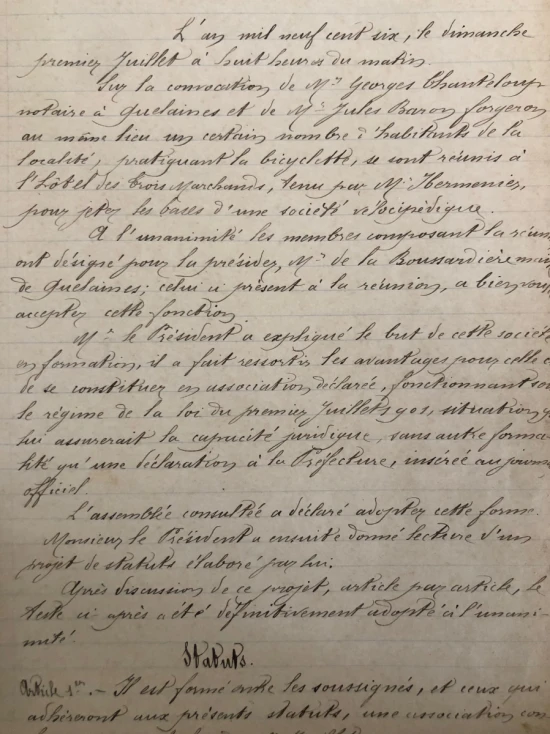 L'an mil neuf cent six, le dimanche
premier Juillet à huit heures du matin.
Sur la convocation de Mr Georges Chanteloup
notaire à Quelaines et de Mr Jules Baron forgeron
au même lieu un certain nombre d'habitants de la
localité, pratiquant la bicyclette, se sont réunis à
l'Hôtel des Trois Marchands, tenu par Mr Hermenier,
pour jeter les bases d'une société vélocipédique.
A l'unanimité les membres composant la réun
ont désigné pour la présider, Mr de la Boussardière mai
de Quelaines; celui ci présent à la réunion, a bien vou
accepter cette fonction.
Mr le Président a expliqué le but de cette société
en formation, il a fait ressortir les avantages pour celle c
de se constituer en association déclarée, fonctionnant so
le régime de la loi du premier Juillet 1901, situation q
lui assurerait la capacité juridique, sans autre forma-
lité qu'une déclaration à la Préfecture, insérée au journa
officiel
L'assemblée consultée a déclaré adopter cette forme.
Monsieur le Président a ensuite donné lecture d'un
projet de statuts élaboré par lui.
Après discussion de ce projet, article par article, le
texte ci après a été définitivement adopté à l'unani-
mité.
Statuts.
Article 1er. - Il est formé entre les soussignés, et ceux qui
adhéreront aux présents statuts, une association con